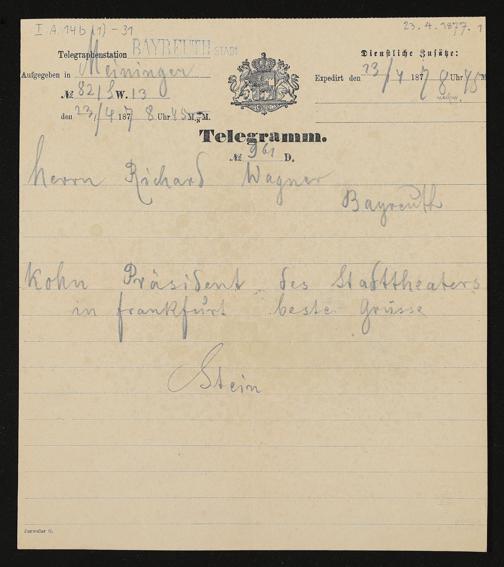 I A 14b (1) - 31
23. 4. 1877. 1
Telegraphenstation BAYREUTH STADT
Dienstliche Zusätze:
Aufgegeben in Meiningen
Expedirt den 23/4 1877 8 Uhr 45 M.
№ 82/S W. 13
den 23/4 1877 8 Uhr 45 M. M.
Telegramm.
№ 961 D.
Herrn Richard Wagner
Bayreuth
Kohn Präsident des Stadttheaters
in Frankfurt beste Grüsse
Stein